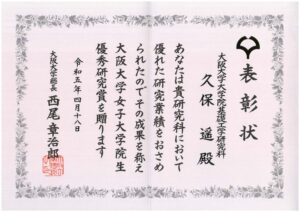 表彰状
大阪大学大学院基礎工学研究科
久保 遥 殿
あなたは貴研究科において
優れた研究業績をおさめ
られたのでその成果を称え
大阪大学女子大学院生
優秀研究賞を贈ります
令和五年四月十八日
大阪大学総長
西尾章治郎